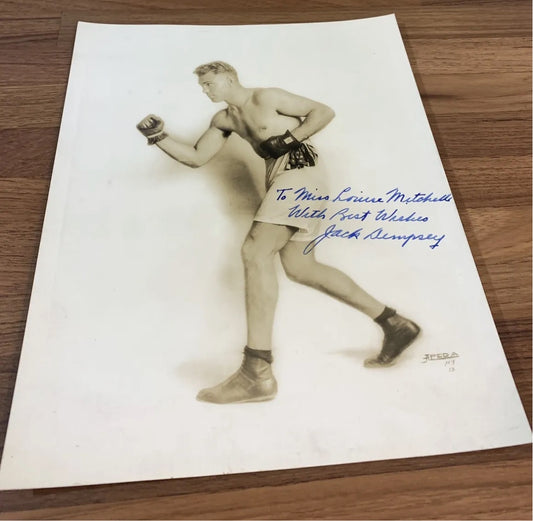 To Miss Louise Mitchell
With Best Wishes
Jack Dempsey
APEDA
N.Y.